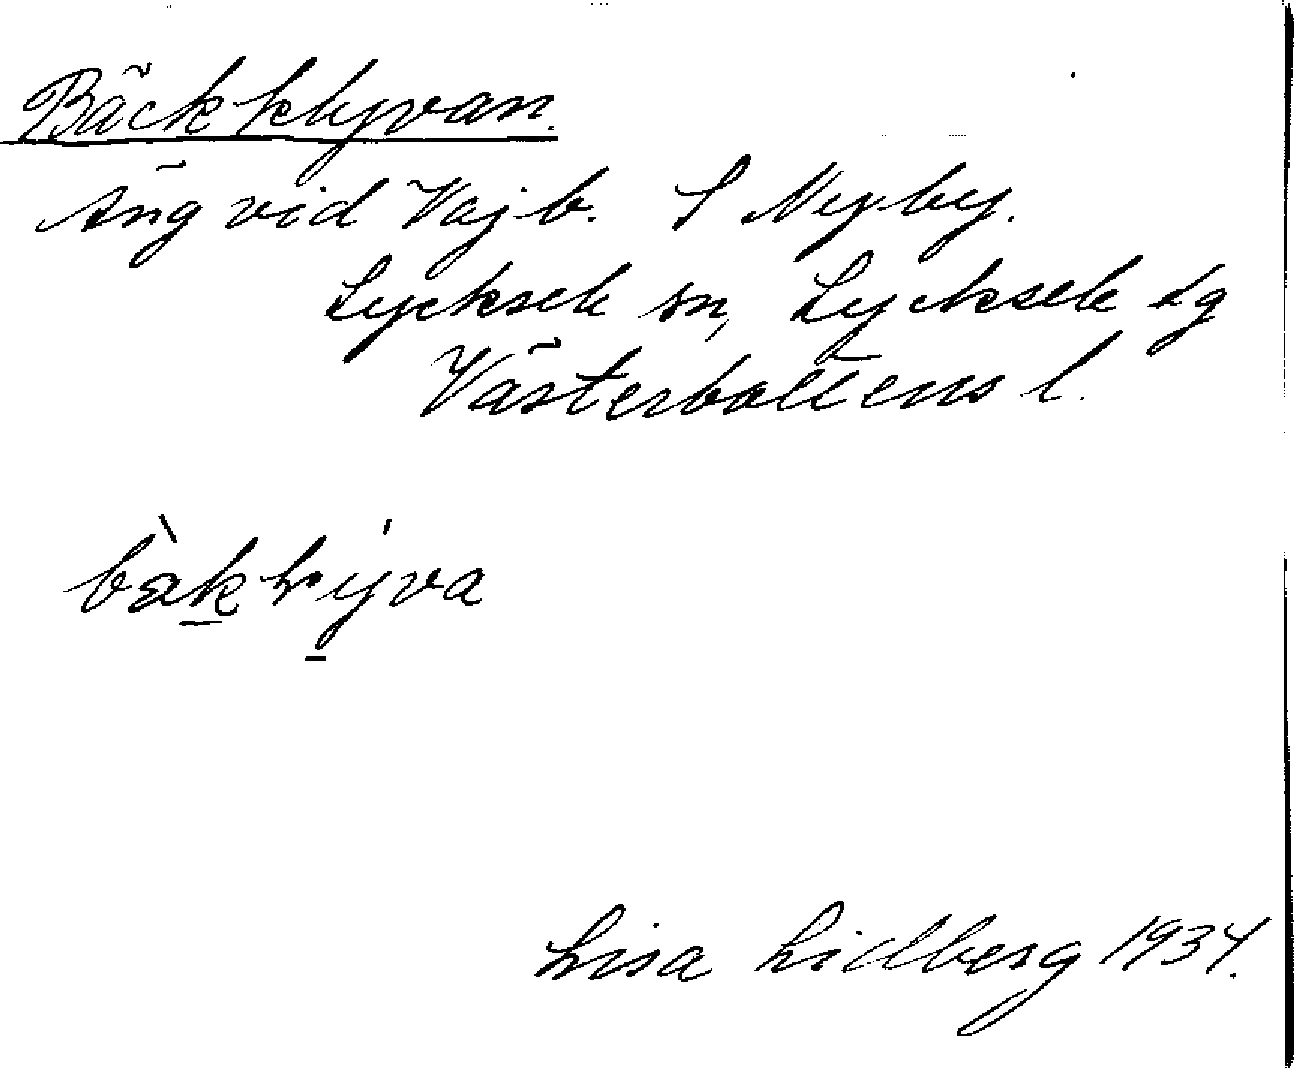 Bäckklyvan.
Äng vid Vajb. S Nyby.
Lycksele sn, Lycksele lg
Västerbottens l.
bàkk​lýva
Lisa Lidberg 1934.